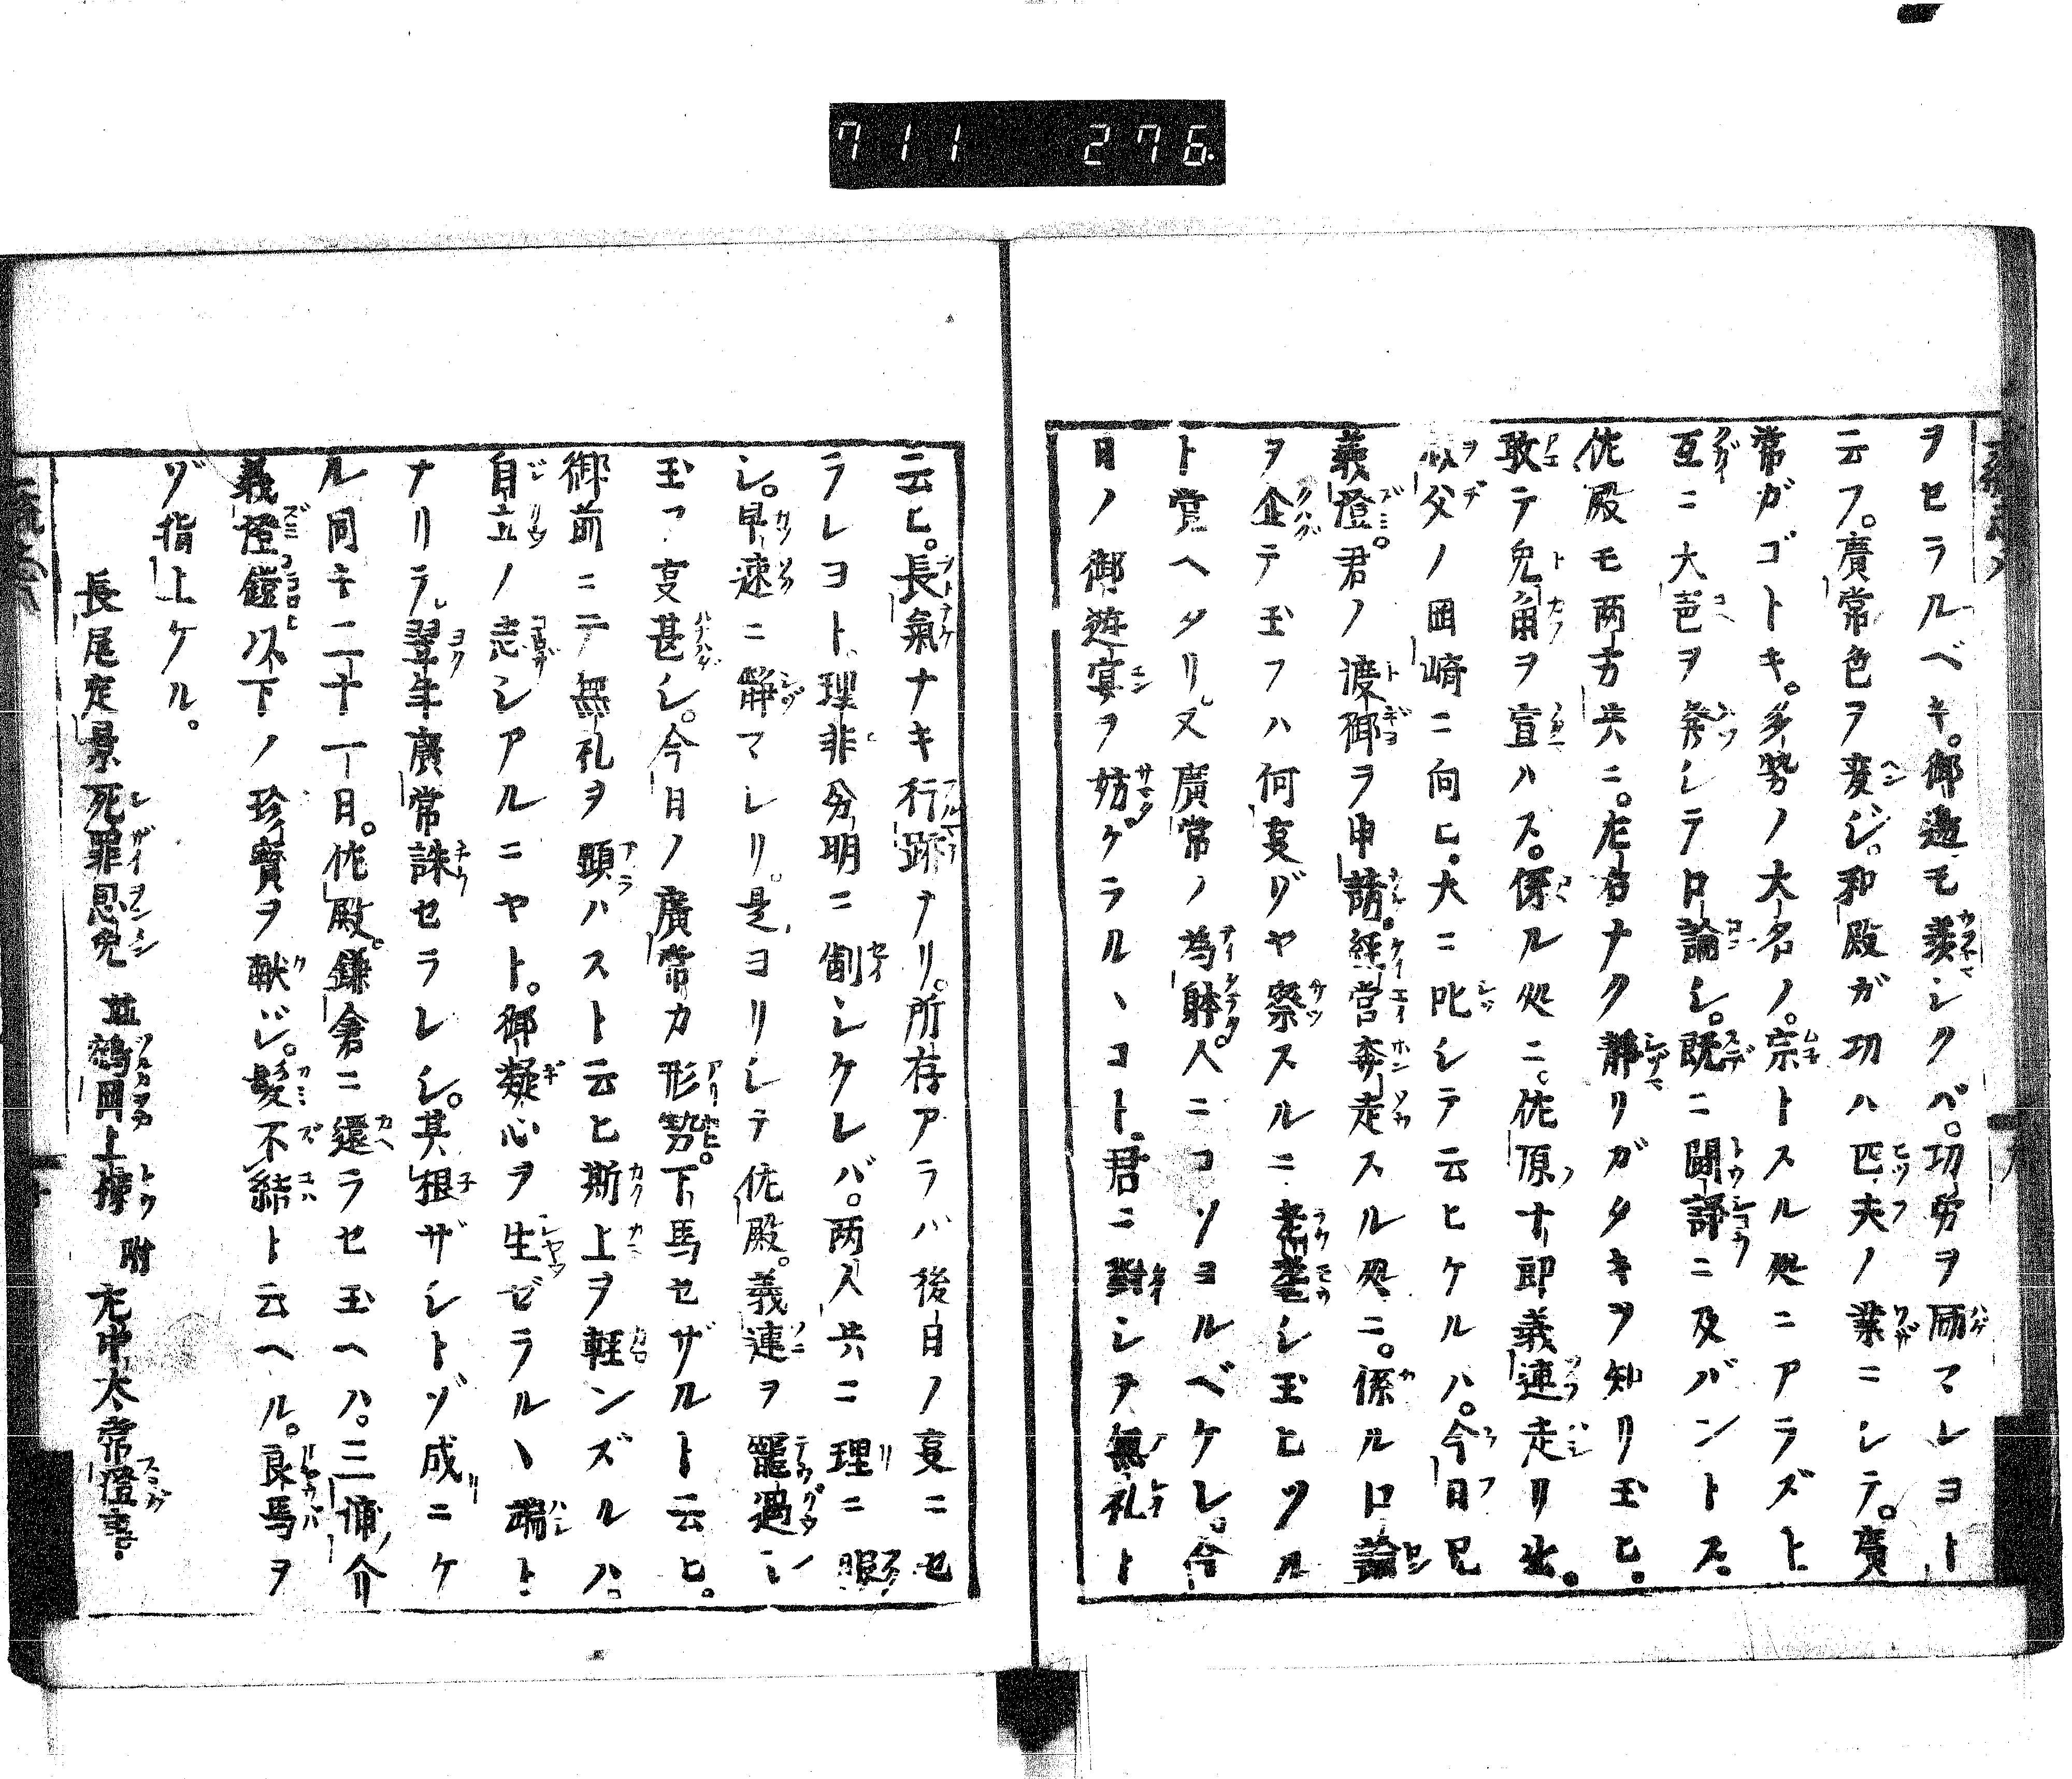 711 276
ヲセラルベキ。御邉モ羨シクバ。功労ヲ励マレヨト
云フ。廣常色ヲ変ジ。和殿ガ功ハ匹夫ノ業ニシテ。廣
常ガゴトキ。多勢ノ大名ノ。宗トスル処ニアラズト
互ニ大音ヲ発シテ口論シ。既ニ闘諍ニ及バントス。
佐殿モ両方共ニ。左右ナク静リガタキヲ知リ玉ヒ。
敢テ兔角ヲ宣ハズ。係ル処ニ。佐原十郎義連走リ出。
叔父ノ岡崎ニ向ヒ。大ニ叱シテ云ヒケルハ。今日兄
義澄。君ノ渡御ヲ申請。経営奔走スル処ニ。係ル口論
ヲ企テ玉フハ何叓ゾヤ察スルニ老耄シ玉ヒツル
ト覚ヘタリ。又廣常ノ為躰。人ニコソヨルベケレ。今
日ノ御遊宴ヲ妨ケラルヽコト。君ニ對シテ無礼ト
云ヒ。長氣ナキ行跡ナリ。所存アラバ後日ノ叓ニセ
ラレヨト。理非分明ニ制シケレバ。両人共ニ理ニ服
シ。早速ニ静マレリ。是ヨリシテ佐殿。義連ヲ寵遇シ
玉フ叓甚シ。今日ノ廣常カ形勢。下馬セザルト云ヒ。
御前ニテ無礼ヲ顕ハスト云ヒ斯上ヲ軽ンズルハ。
自立ノ志シアルニヤト。御疑心ヲ生ゼラルヽ端ト
ナリテ。翌年廣常誅セラレシ。其根ザシトゾ成ニケ
ル同キ二十一日。佐殿。鎌倉ニ還ラセ玉ヘハ。三浦介
義澄鎧以下ノ珍寳ヲ献ジ。髪不結ト云ヘル。良馬ヲ
ゾ指上ケル。
長尾定景死罪恩免 並鶴岡上棟 附